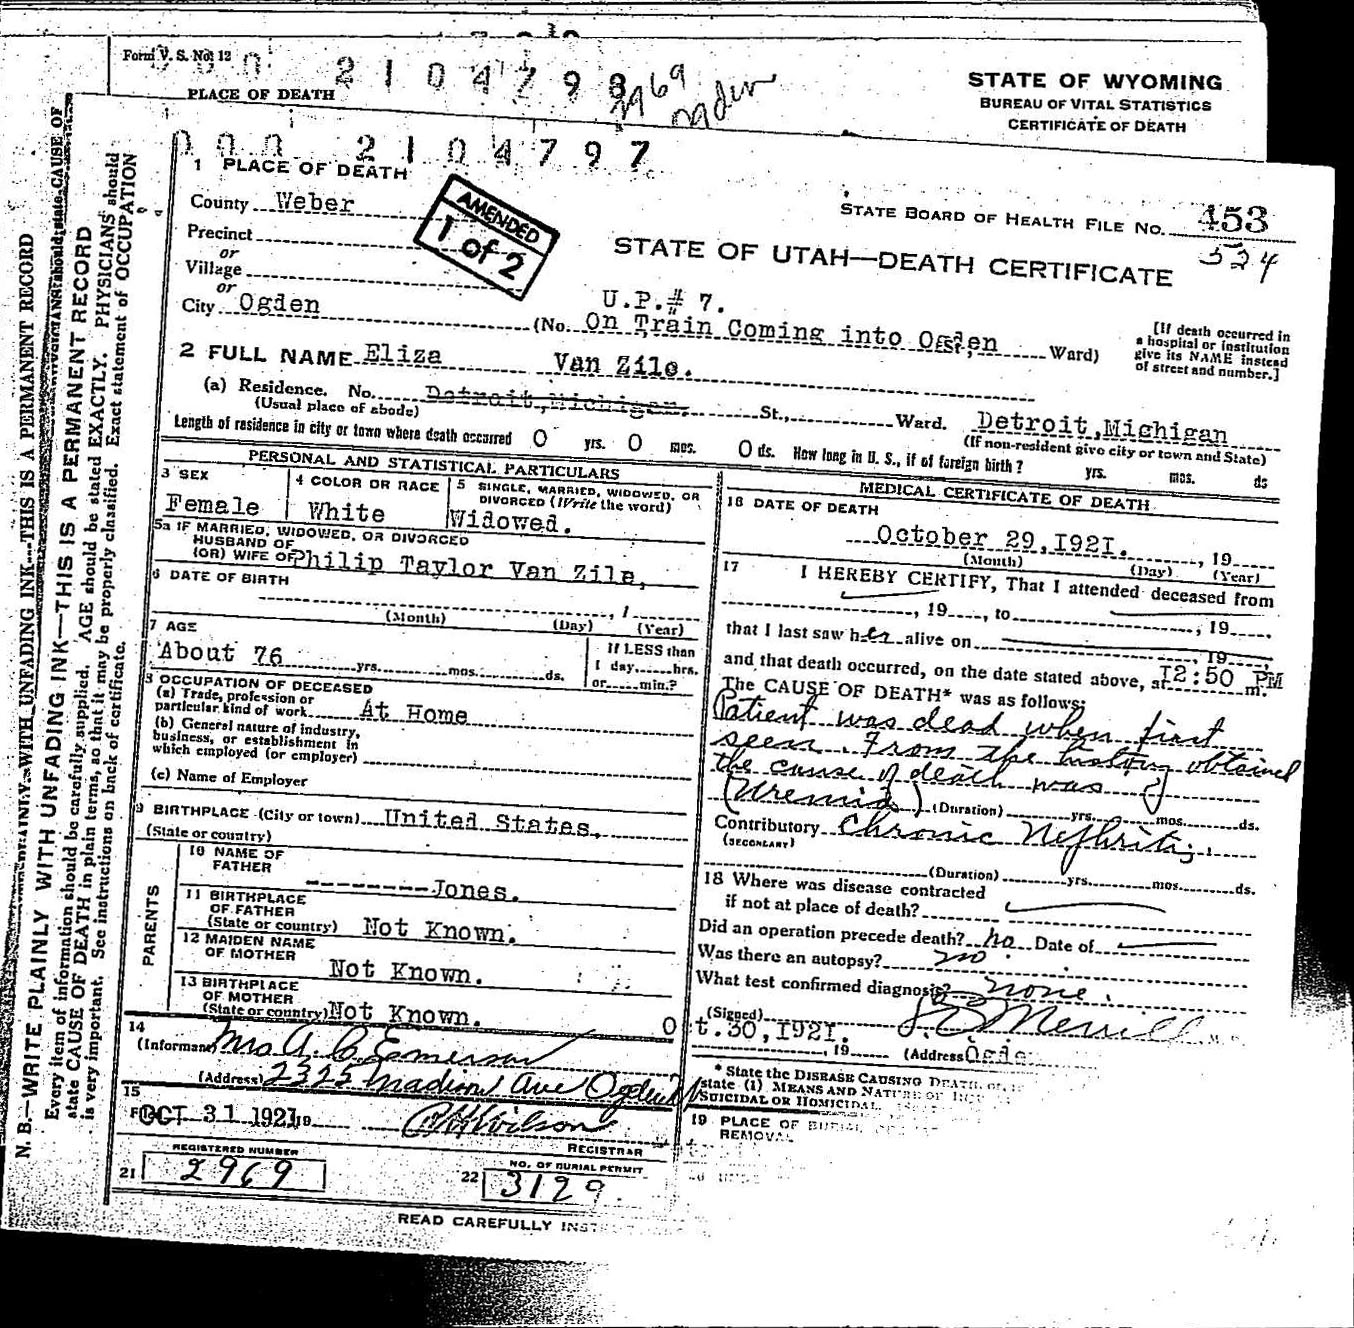 Form V. S. No. 12
000 2104798
2969
Ogden
PLACE OF DEATH
STATE OF WYOMING
BUREAU OF VITAL STATISTICS
CERTIFICATE OF DEATH
000 2104797
1 PLACE OF DEATH
County Weber
AMENDED
1 of 2
STATE BOARD OF HEALTH FILE No. 453
524
Precinct
or
Village
or
STATE OF UTAH—DEATH CERTIFICATE
City Ogden
U.P.# 7.
(No. On Train Coming into Ogden St., Ward)
[If death occurred in
a hospital or institution
give its NAME instead
of street and number.]
2 FULL NAME Eliza Van Zile.
(a) Residence. No. Detroit, Michigan. St., Ward. Detroit, Michigan
(Usual place of abode)
(If non-resident give city or town and State)
Length of residence in city or town where death occurred 0 yrs. 0 mos. 0 ds. How long in U. S., if of foreign birth? yrs. mos. ds
PERSONAL AND STATISTICAL PARTICULARS
3 SEX
Female
4 COLOR OR RACE
White
5 SINGLE, MARRIED, WIDOWED, OR
DIVORCED (Write the word)
Widowed.
5a IF MARRIED, WIDOWED, OR DIVORCED
HUSBAND OF
(OR) WIFE OF Philip Taylor Van Zile,
6 DATE OF BIRTH
, 1
(Month) (Day) (Year)
7 AGE
About 76 yrs. mos. ds.
If LESS than
1 day......hrs.
or......min.?
8 OCCUPATION OF DECEASED
(a) Trade, profession or
particular kind of work At Home
(b) General nature of industry,
business, or establishment in
which employed (or employer)
(c) Name of Employer
9 BIRTHPLACE (City or town) United States,
(State or country)
PARENTS
10 NAME OF
FATHER
--------Jones.
11 BIRTHPLACE
OF FATHER
(State or country) Not Known.
12 MAIDEN NAME
OF MOTHER
Not Known.
13 BIRTHPLACE
OF MOTHER
(State or country) Not Known.
14
(Informant Mrs A. C. Emerson
(Address) 2325 Madison Ave Ogden
15
OCT 31 1921 19
REGISTRAR
REGISTERED NUMBER
21 2969
NO. OF BURIAL PERMIT
22 3129.
READ CAREFULLY
MEDICAL CERTIFICATE OF DEATH
16 DATE OF DEATH
October 29, 1921. , 19
(Month) (Day) (Year)
17 I HEREBY CERTIFY, That I attended deceased from
, 19 , to , 19
that I last saw her alive on , 19
and that death occurred, on the date stated above, at 12:50 PM m.
The CAUSE OF DEATH* was as follows:
Patient was dead when first
seen. From the history obtained
the cause of death was
(Uremia) (Duration) yrs. mos. ds.
Contributory Chronic Nephritis.
(SECONDARY)
(Duration) yrs. mos. ds.
18 Where was disease contracted
if not at place of death?
Did an operation precede death? No Date of
Was there an autopsy? no
What test confirmed diagnosis? none.
(Signed) Merrill M. D.
t. 30, 1921. , 19 (Address Ogde
* State the DISEASE CAUSING DEATH, or
state (1) MEANS AND NATURE OF
SUICIDAL OR HOMICIDAL
19 PLACE OF BURIAL
REMOVAL
N. B.—WRITE PLAINLY WITH UNFADING INK—THIS IS A PERMANENT RECORD
Every item of information should be carefully supplied. AGE should be stated EXACTLY. PHYSICIANS should
state CAUSE OF DEATH in plain terms, so that it may be properly classified. Exact statement of OCCUPATION
is very important. See instructions on back of certificate.